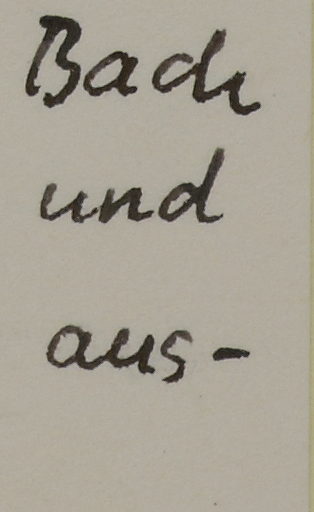 Bach
und
aus-